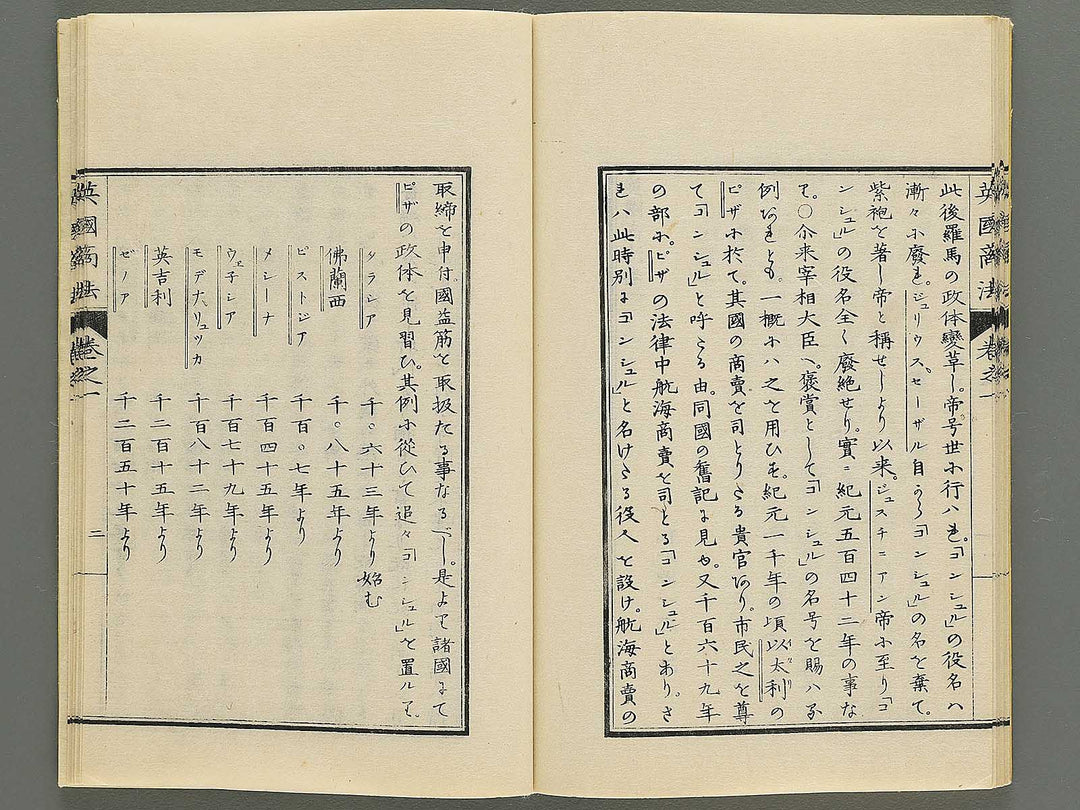 英國商法 卷之一
此後羅馬の政体變革し。帝号世ニ行ハれ。「コンシュル」の役名ハ
漸々ニ廢れ。ジュリウス。セーザル自から「コンシュル」の名を棄て。
紫袍を著し帝と稱せしより以来。ジュスチニアン帝ニ至り「コ
ンシュル」の役名全く廢絶せり。實ニ紀元五百四十二年の事な
り。〇尒来宰相大臣へ。褒賞として「コンシュル」の名号を賜ハる
例あれども。一概ニハ之を用ひず。紀元一千年の頃以太利の
ピザニ於て。其國の商賣を司どりたる貴官あり。市民之を尊
て「コンシュル」と呼たる由。同國の舊記に見ゆ。又千百六十九年
の部ニ。ピザの法律中航海商賣を司とる「コンシュル」とあり。さ
れハ此時別に「コンシュル」と名けたる役人を設け。航海商賣の
取締を申付。國益筋を取扱たる事なるべし。是よりて諸國にて
ピザの政体を見習ひ。其例ニ從ひて追々「コンシュル」を置ルて。
タラシア 千〇六十三年より始む
佛蘭西 千〇八十五年より
ピストジア 千百〇七年より
メシーナ 千百四十五年より
ウェ子シア 千百七十九年より
モデナ。リュッカ 千百八十二年より
英吉利 千二百十五年より
ゼノア 千二百五十年より
英國商法 卷之一 二